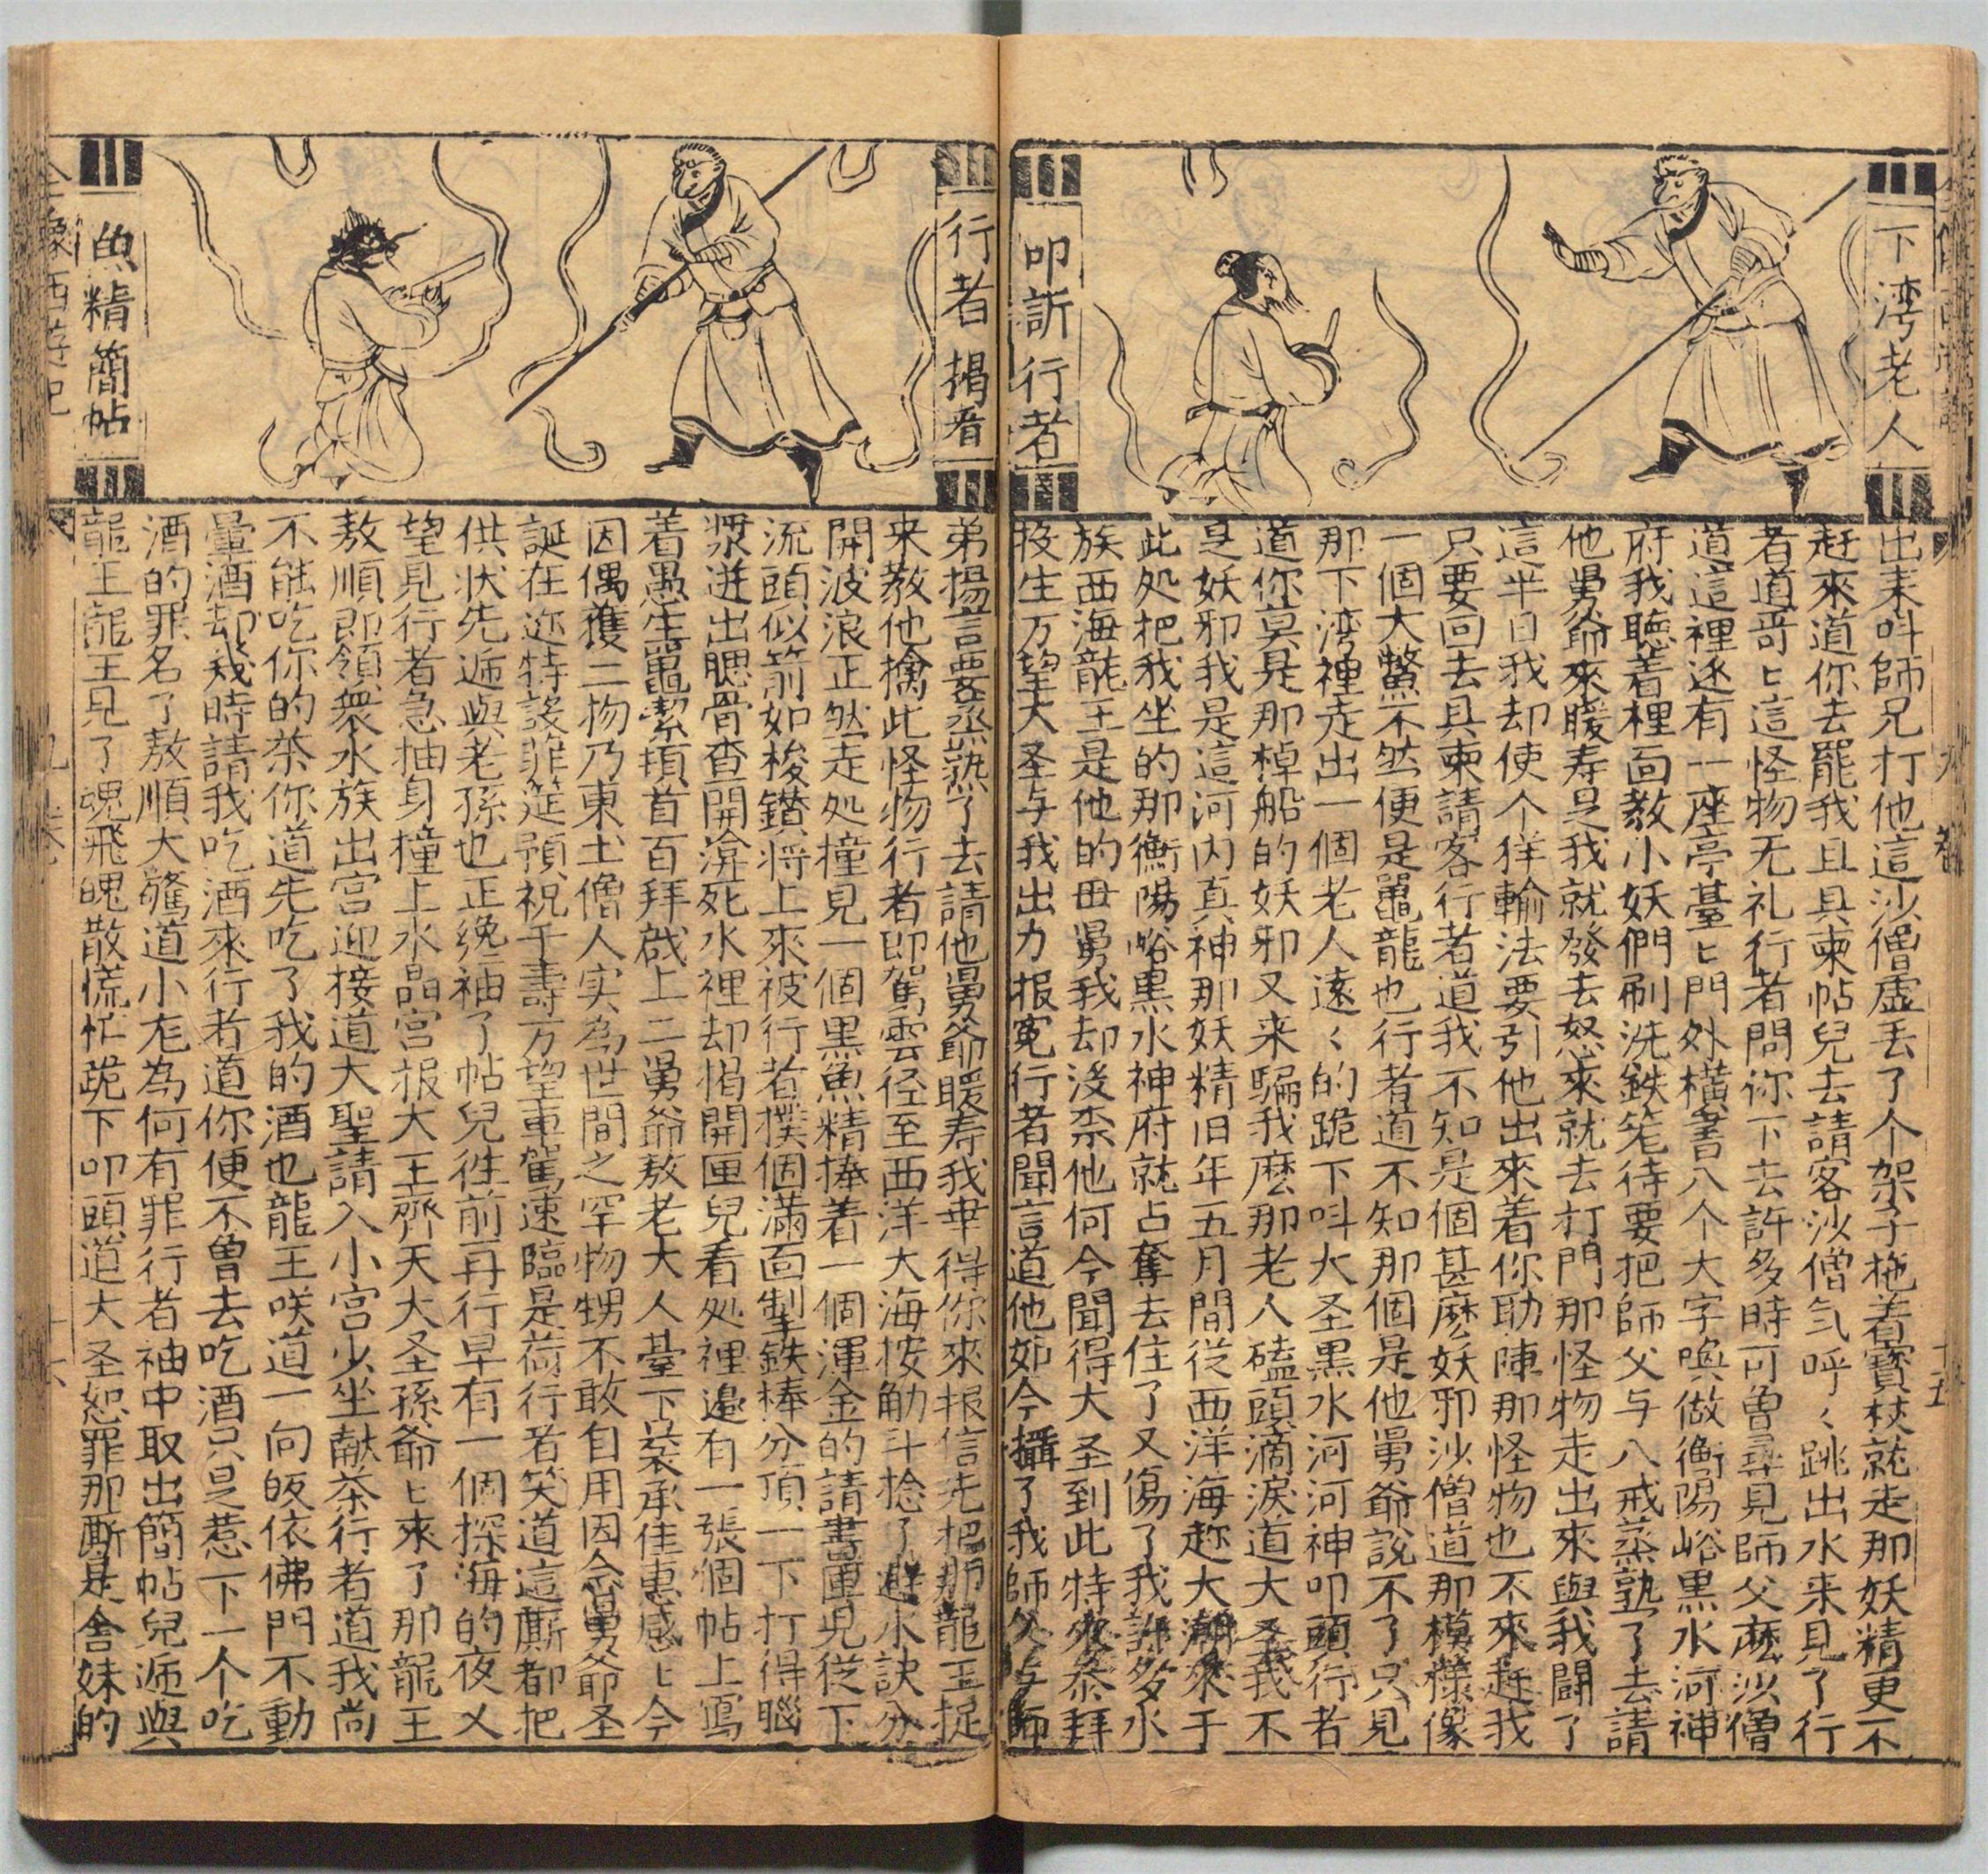 下湾老人
叩訴行者
出来呌師兄打他這沙僧虚丢了个架子拖着寳杖就走那妖精更不
赶來道你去罷我且具柬帖兒去請客沙僧气呼〻跳出水来見了行
者道哥〻這怪物无礼行者問你下去許多時可曽尋見師父麽沙僧
道這裡邊有一座亭臺〻門外橫書八个大字喚做衡陽峪黒水河神
府我聴着裡面教小妖們刷洗鉄笼待要把師父与八戒蒸熟了去請
他舅爺來暖寿是我就發去怒來就去打門那怪物走出來與我闘了
這半日我却使个佯輸法要引他出來着你助陣那怪物也不來赶我
只要回去具柬請客行者道我不知是個甚麽妖邪沙僧道那模樣像
一個大鱉不然便是鼉龍也行者道不知那個是他舅爺說不了只見
那下湾裡走出一個老人遠〻的跪下呌大圣黒水河河神叩頭行者
道你莫是那棹船的妖邪又来騙我麽那老人磕頭滴淚道大圣我不
是妖邪我是這河内真神那妖精旧年五月間從西洋海趂大潮來于
此処把我坐的那衡陽峪黒水神府就占奪去住了又傷了我許多水
族西海龍王是他的母舅我却没柰他何今聞得大圣到此特來叅拜
投生万望大圣与我出力报寃行者聞言道他如今攝了我師父与師
行者揭看
魚精簡帖
弟揚言要蒸熟了去請他舅爺暖寿我畢得你來报信先把那龍王捉
来教他擒此怪物行者即駕雲径至西洋大海按觔斗捻了避水訣分
開波浪正然走処撞見一個黒魚精捧着一個渾金的請書匣兒從下
流頭似箭如梭鑚将上來被行者撲個滿面掣鉄棒分頂一下打得腦
漿迸出腮骨查開渰死水裡却揭開匣兒看処裡邉有一張個帖上寫
着愚甥鼉潔頓首百拜啟上二舅爺敖老大人臺下荣承佳惠感〻今
因偶獲二物乃東土僧人实為世間之罕物甥不敢自用因念舅爺圣
誕在迩特設菲筵預祝千壽万望車駕速臨是荷行者笑道這厮都把
供状先遞與老孫也正纔袖了帖兒徃前再行早有一個探海的夜乂
望見行者急抽身撞上水晶宮报大王齊天大圣孫爺〻來了那龍王
敖順即領衆水族出宮迎接道大聖請入小宮少坐献茶行者道我尚
不能吃你的茶你道先吃了我的酒也龍王咲道一向皈依佛門不動
葷酒却幾時請我吃酒來行者道你便不曽去吃酒只是惹下一个吃
酒的罪名了敖順大驚道小龙為何有罪行者袖中取出簡帖兒遞與
龍王龍王見了魂飛魄散慌忙跪下叩頭道大圣恕罪那厮是舍妹的